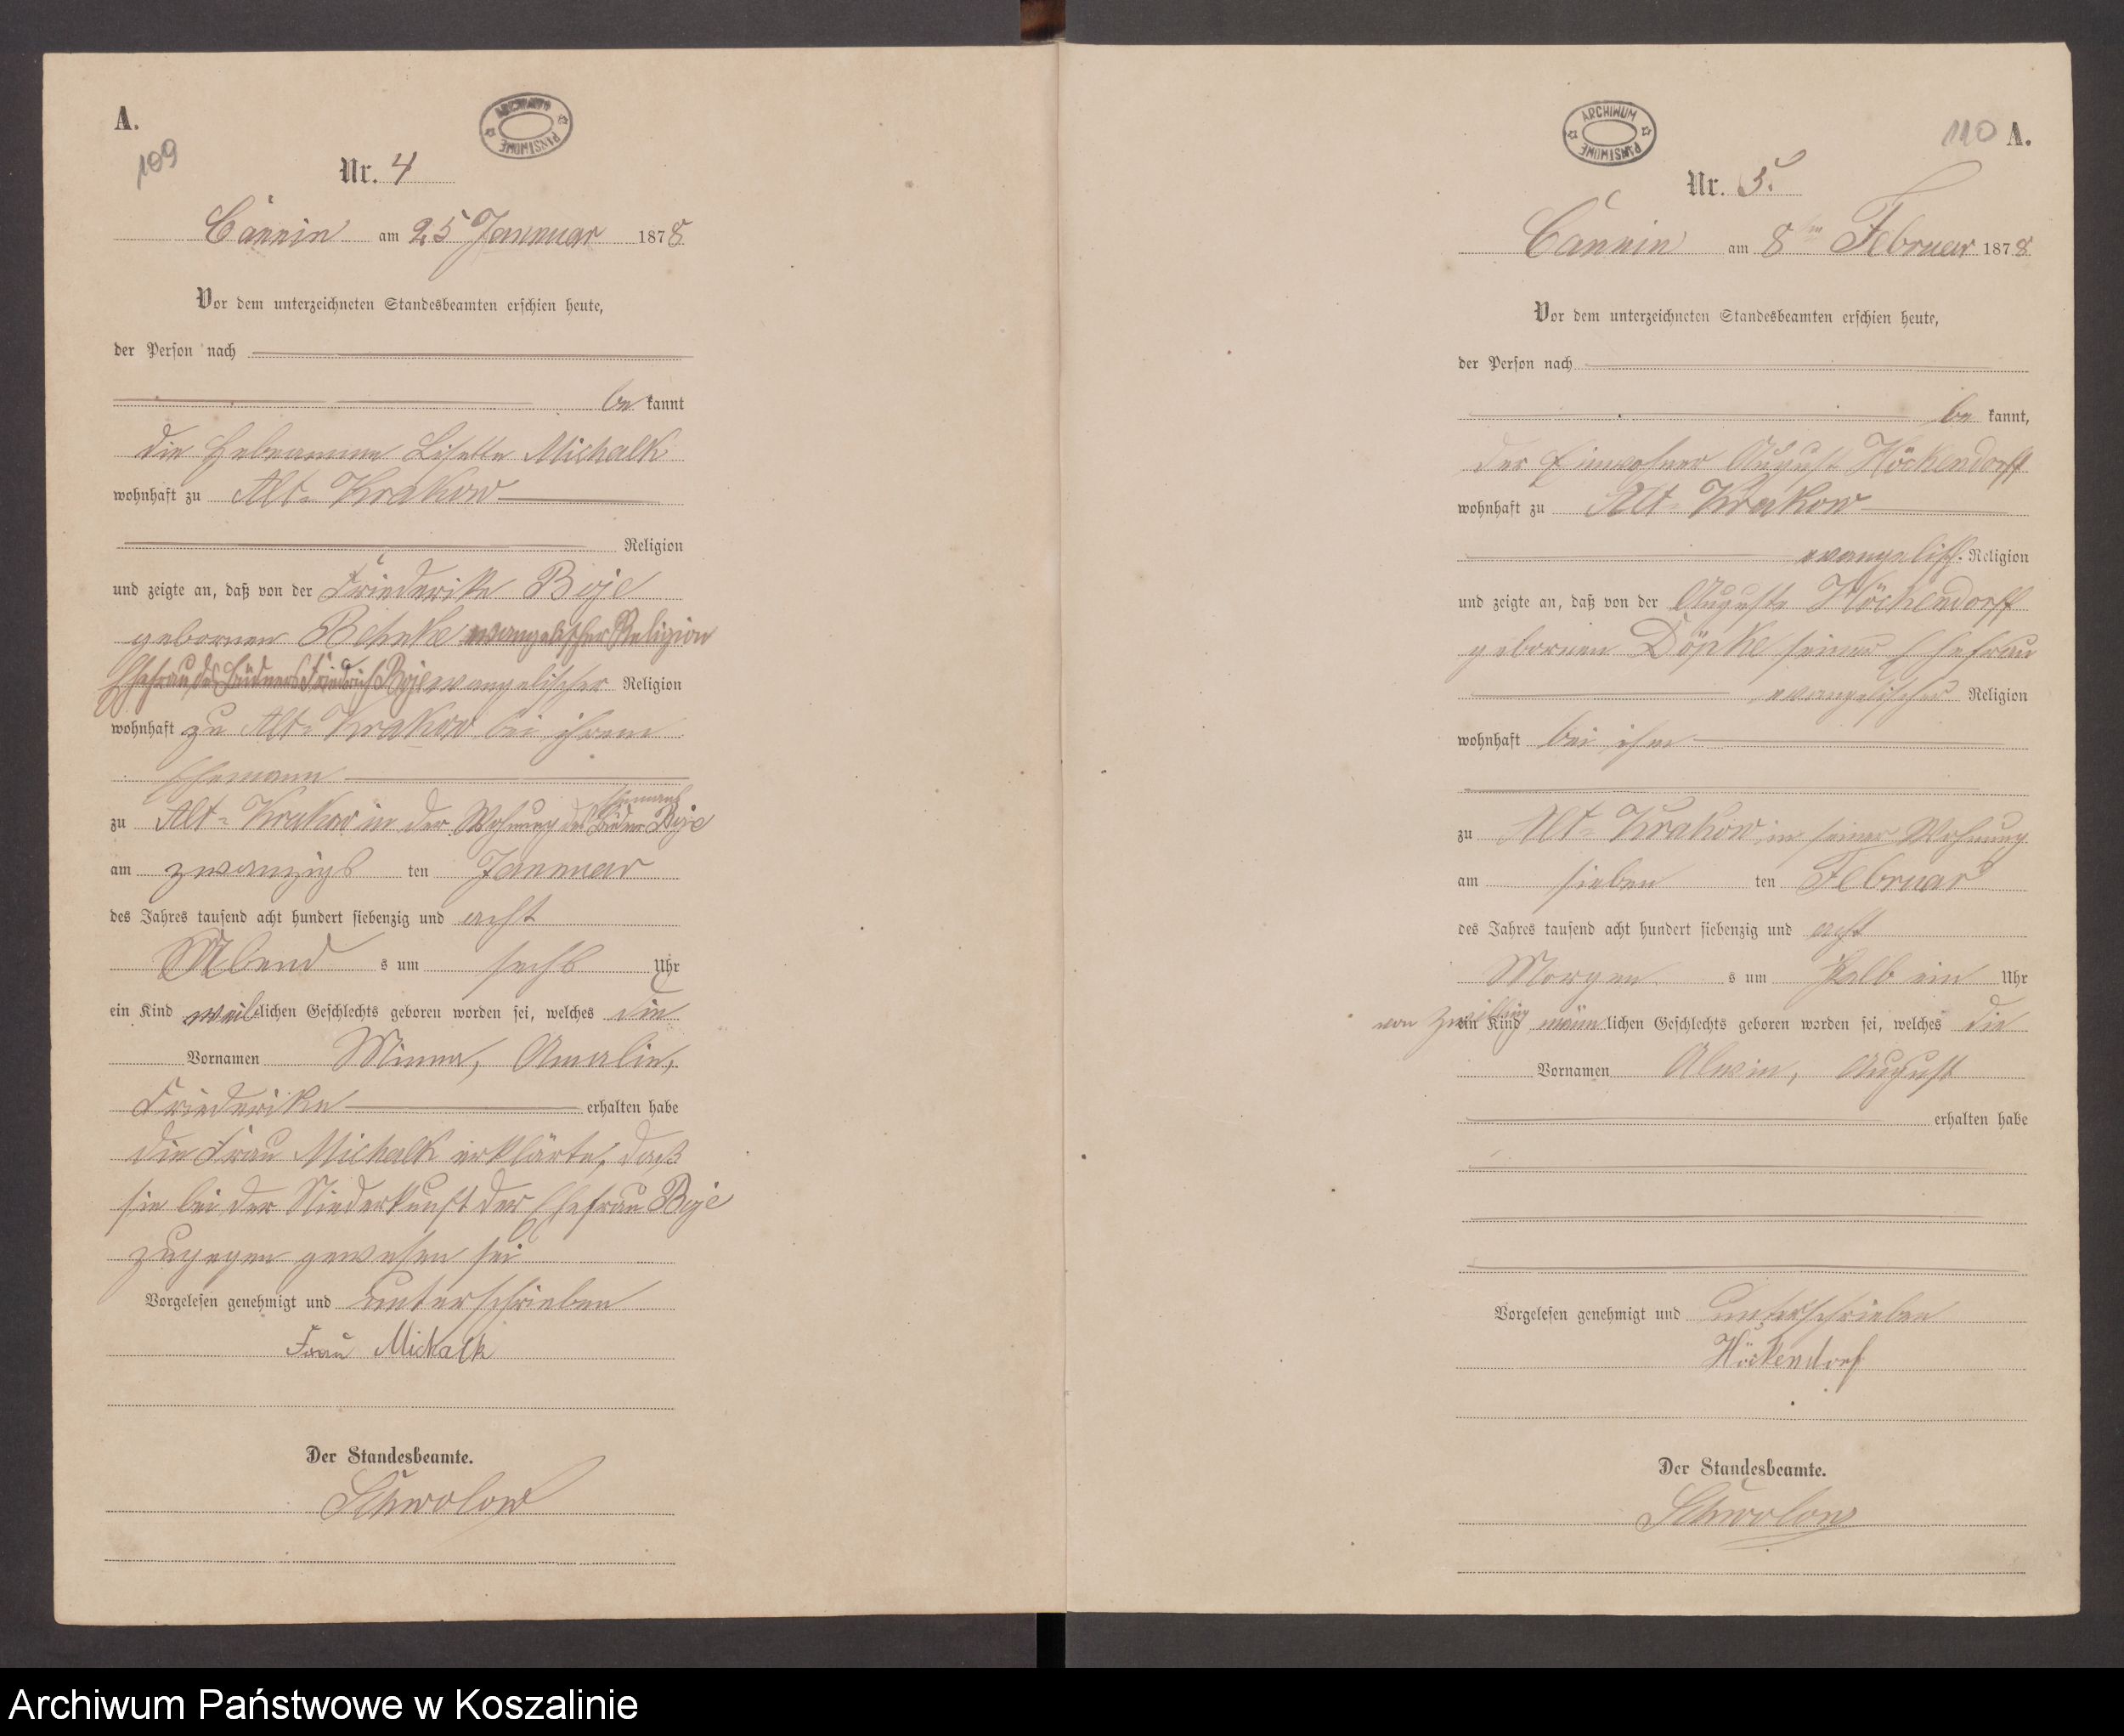 A.
109
ARCHIWUM PAŃSTWOWE
Nr. 4
Cannin am 25 Januar 1878
Vor dem unterzeichneten Standesbeamten erschien heute,
der Person nach
be kannt
die Hebeamme Lisette Michalk
wohnhaft zu Alt-Krakow
Religion
und zeigte an, daß von der Friederike Boje
gebornen Behnke evangelischer Religion
Ehefrau des Büdners Friedrich Boje evangelischer Religion
wohnhaft zu Alt-Krakow bei ihrem
Ehemann
zu Alt-Krakow in der Wohnung des Ehemanns Büdner Boje
am zwanzigs ten Januar
des Jahres tausend acht hundert siebenzig und acht
Abend s um sechs Uhr
ein Kind weiblichen Geschlechts geboren worden sei, welches die
Vornamen Minna, Amalie,
Friederike erhalten habe
die Frau Michalk erklärte, daß
sie bei der Niederkunft der Ehefrau Boje
zugegen gewesen sei
Vorgelesen genehmigt und unterschrieben
Frau Michalk
Der Standesbeamte.
Schwolow
110 A.
ARCHIWUM PAŃSTWOWE
Nr. 5.
Cannin am 8ten Februar 1878
Vor dem unterzeichneten Standesbeamten erschien heute,
der Person nach
be kannt,
der Einwohner August Höckendorff
wohnhaft zu Alt-Krakow
evangelisch. Religion
und zeigte an, daß von der Auguste Höckendorff
gebornen Döpke seiner Ehefrau
evangelischer Religion
wohnhaft bei ihm
zu Alt-Krakow in seiner Wohnung
am sieben ten Februar
des Jahres tausend acht hundert siebenzig und acht
Morgen s um halb ein Uhr
von Zwilling ein Kind männlichen Geschlechts geboren worden sei, welches die
Vornamen Alwin, August
erhalten habe
Vorgelesen genehmigt und unterschrieben
Höckendorf
Der Standesbeamte.
Schwolow
Archiwum Państwowe w Koszalinie